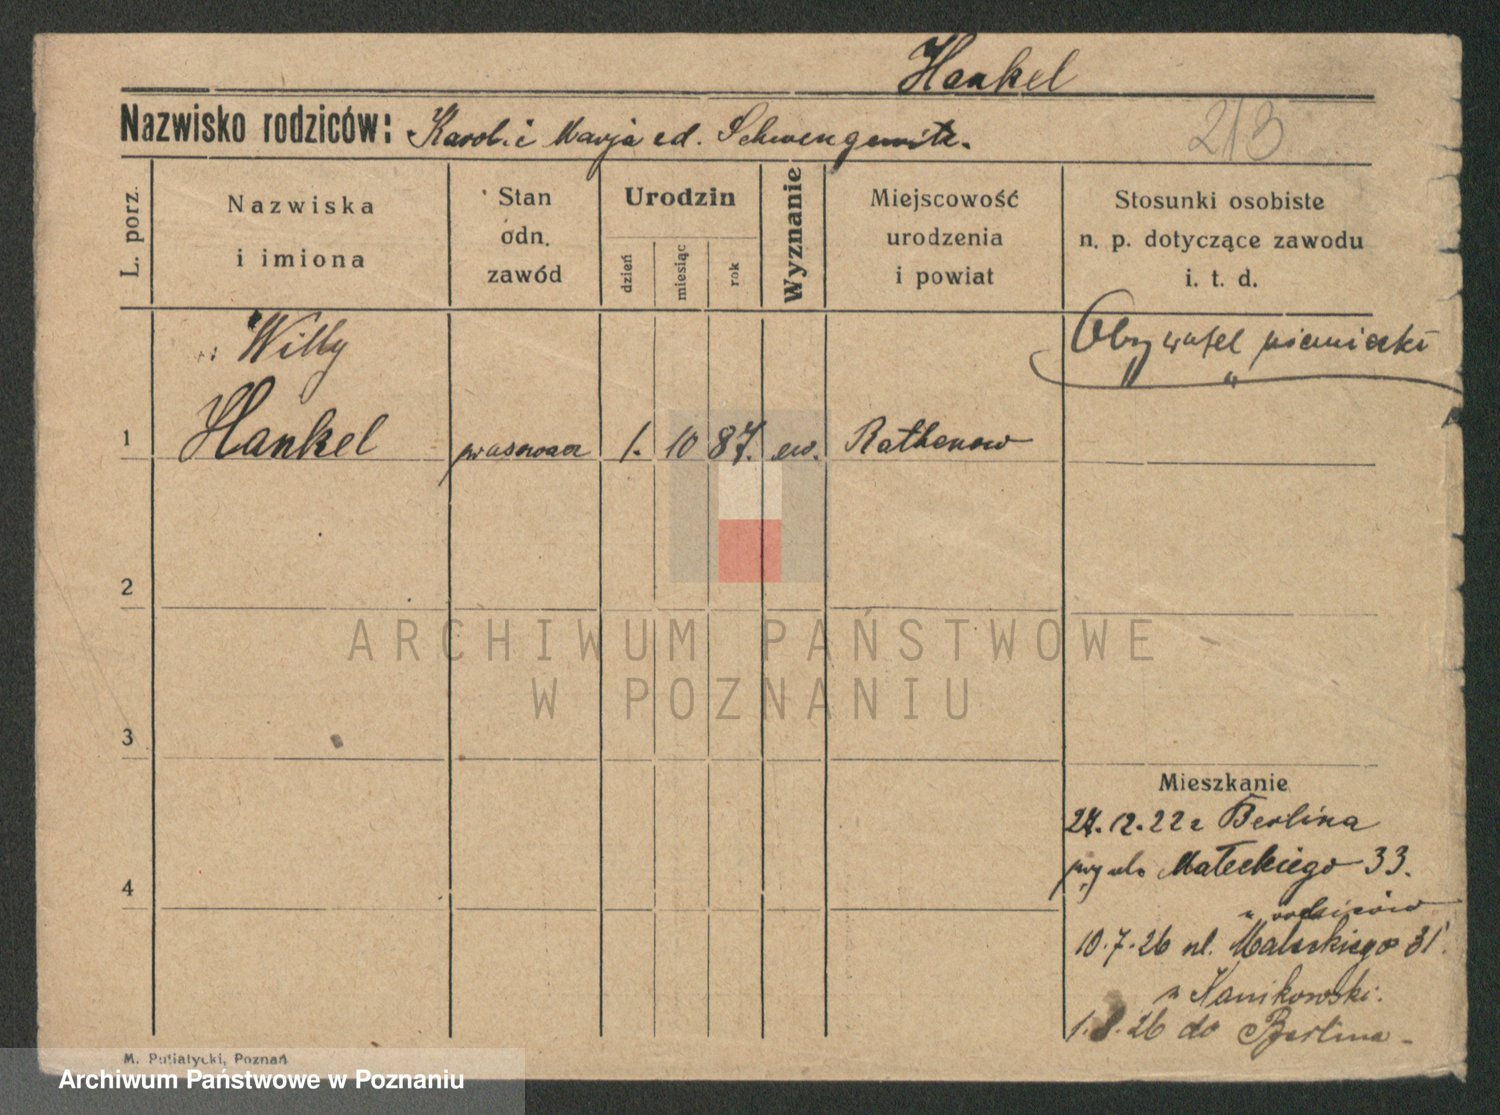 Hankel
Nazwisko rodziców: Karol i Marja
213
L. porz.
Nazwiska
i imiona
Stan
odn.
zawód
Urodzin
dzień
miesiąc
rok
Wyznanie
Miejscowość
urodzenia
i powiat
Stosunki osobiste
n. p. dotyczące zawodu
i. t. d.
Obywatel niemiecki
Willy
1 Hankel 1. 10 87. ew. Rathenow
2
3
4
ARCHIWUM PAŃSTWOWE
W POZNANIU
Mieszkanie
12.22 z Berlina
Małeckiego 33.
u rodziców
10.7.26 ul. Małeckiego 31.
u Kanikowski.
1.8.26 do Berlina
M. Putiatycki, Poznań
Archiwum Państwowe w Poznaniu